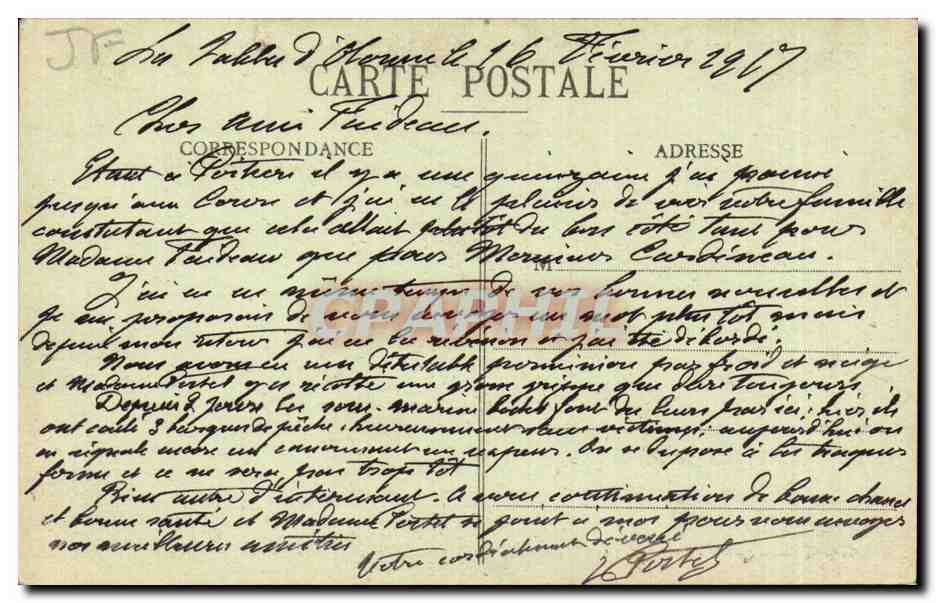 JF
Les Sables d'Olonne le 16 Février 1917
CARTE POSTALE
Cher ami Tuideau.
CORRESPONDANCE
ADRESSE
Etant à Poitiers il y a une quinzaine j'ai poussé
jusqu'aux Cours et j'ai eu le plaisir de voir votre famille
constatant que cela allait plutôt du bon côté tant pour
Madame que pour Monsieur Cardineau.
M
J'ai eu en même temps de vos bonnes nouvelles et
je me proposais de vous envoyer un mot plus tôt mais
depuis mon retour j'ai eu la révision et j'ai été débordé.
CPARAMA
Nous avons eu une détestable permission par froid et neige
et Madame Portet y a récolté une grosse grippe que dure toujours
Depuis 2 jours les sous-marins boches font du leurs par ici; hier ils
ont coulé 3 barques de pêche, heureusement sans victimes; aujourd'hui on
en signale encore un canonnant un vapeur. On se dispose à les traquer
ferme et ce ne sera pas trop tôt
Rien autre d'intéressant. A vous continuation de bonne chance
et bonne santé et Madame Portet se joint à moi pour vous envoyer
nos meilleures amitiés
Votre cordialement dévoué
Portet